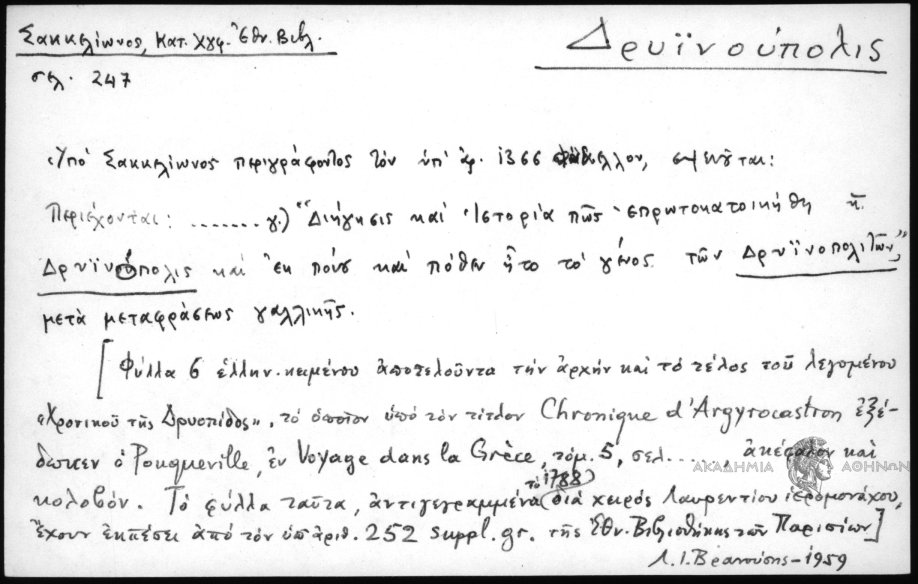 Σακκελίωνος, Κατ. Χγφ. Ἐθν. Βιβλ.
Δρυϊνούπολις
σελ. 247
Ὑπὸ Σακκελίωνος περιγράφοντος τὸν ὑπ' ἀρ. 1366 σημειοῦται:
Περιέχονται: ....... γ.) "Διήγησις καὶ Ἱστορία πῶς ἐπρωτοκατοικήθη ἡ
Δρυϊνούπολις καὶ ἐκ ποῦ καὶ πόθεν ἦτο τὸ γένος τῶν Δρυϊνοπολιτῶν"
μετὰ μεταφράσεως γαλλικῆς.
[Φύλλα 6 ἑλλην. κειμένου ἀποτελοῦντα τὴν ἀρχὴν καὶ τὸ τέλος τοῦ λεγομένου
«Χρονικοῦ τῆς Δρυοπίδος», τὸ ὁποῖον ὑπὸ τὸν τίτλον Chronique d'Argyrocastron ἐξέ-
δωκεν ὁ Pouqueville, ἐν Voyage dans la Grèce, τόμ. 5, σελ...., ἀκέφαλον καὶ
κολοβόν. Τὰ φύλλα ταῦτα, ἀντιγεγραμμένα τῷ 1788 διὰ χειρὸς Λαυρεντίου ἱερομονάχου,
ἔχουν ἐκπέσει ἀπὸ τὸν ὑπ' ἀριθ. 252 suppl. gr. τῆς Ἐθν. Βιβλιοθήκης τῶν Παρισίων]
Λ. Ι. Βρανούσης - 1959
ΑΚΑΔΗΜΙΑ ΑΘΗΝΩΝ